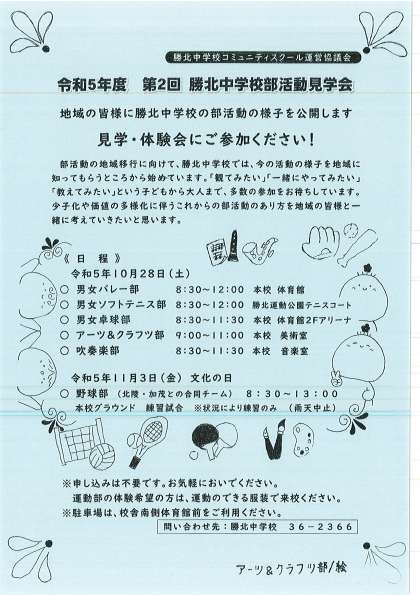 勝北中学校コミュニティスクール運営協議会
令和5年度　第2回 勝北中学校部活動見学会
地域の皆様に勝北中学校の部活動の様子を公開します
見学・体験会にご参加ください！
部活動の地域移行に向けて、勝北中学校では、今の活動の様子を地域に
知ってもらうところから始めています。「観てみたい」「一緒にやってみたい」
「教えてみたい」という子どもから大人まで、多数の参加をお待ちしています。
少子化や価値の多様化に伴うこれからの部活動のあり方を地域の皆様と一
緒に考えていきたいと思います。
《 日 程 》
令和5年10月28日（土）
○ 男女バレー部　8:30～12:00　本校 体育館
○ 男女ソフトテニス部　8:30～12:00　勝北運動公園テニスコート
○ 男女卓球部　8:30～11:30　本校 体育館2Fアリーナ
○ アーツ＆クラフツ部　9:00～11:00　本校 美術室
○ 吹奏楽部　8:30～11:30　本校 音楽室
令和5年11月3日（金）文化の日
○ 野球部（北陵・加茂との合同チーム）8:30～13:00
本校グラウンド　練習試合　※状況により練習のみ　（雨天中止）
※申し込みは不要です。お気軽においでください。
運動部の体験希望の方は、運動のできる服装で来校ください。
※駐車場は、校舎南側体育館前をご利用ください。
問い合わせ先：勝北中学校　36-2366
アーツ＆クラフツ部/絵